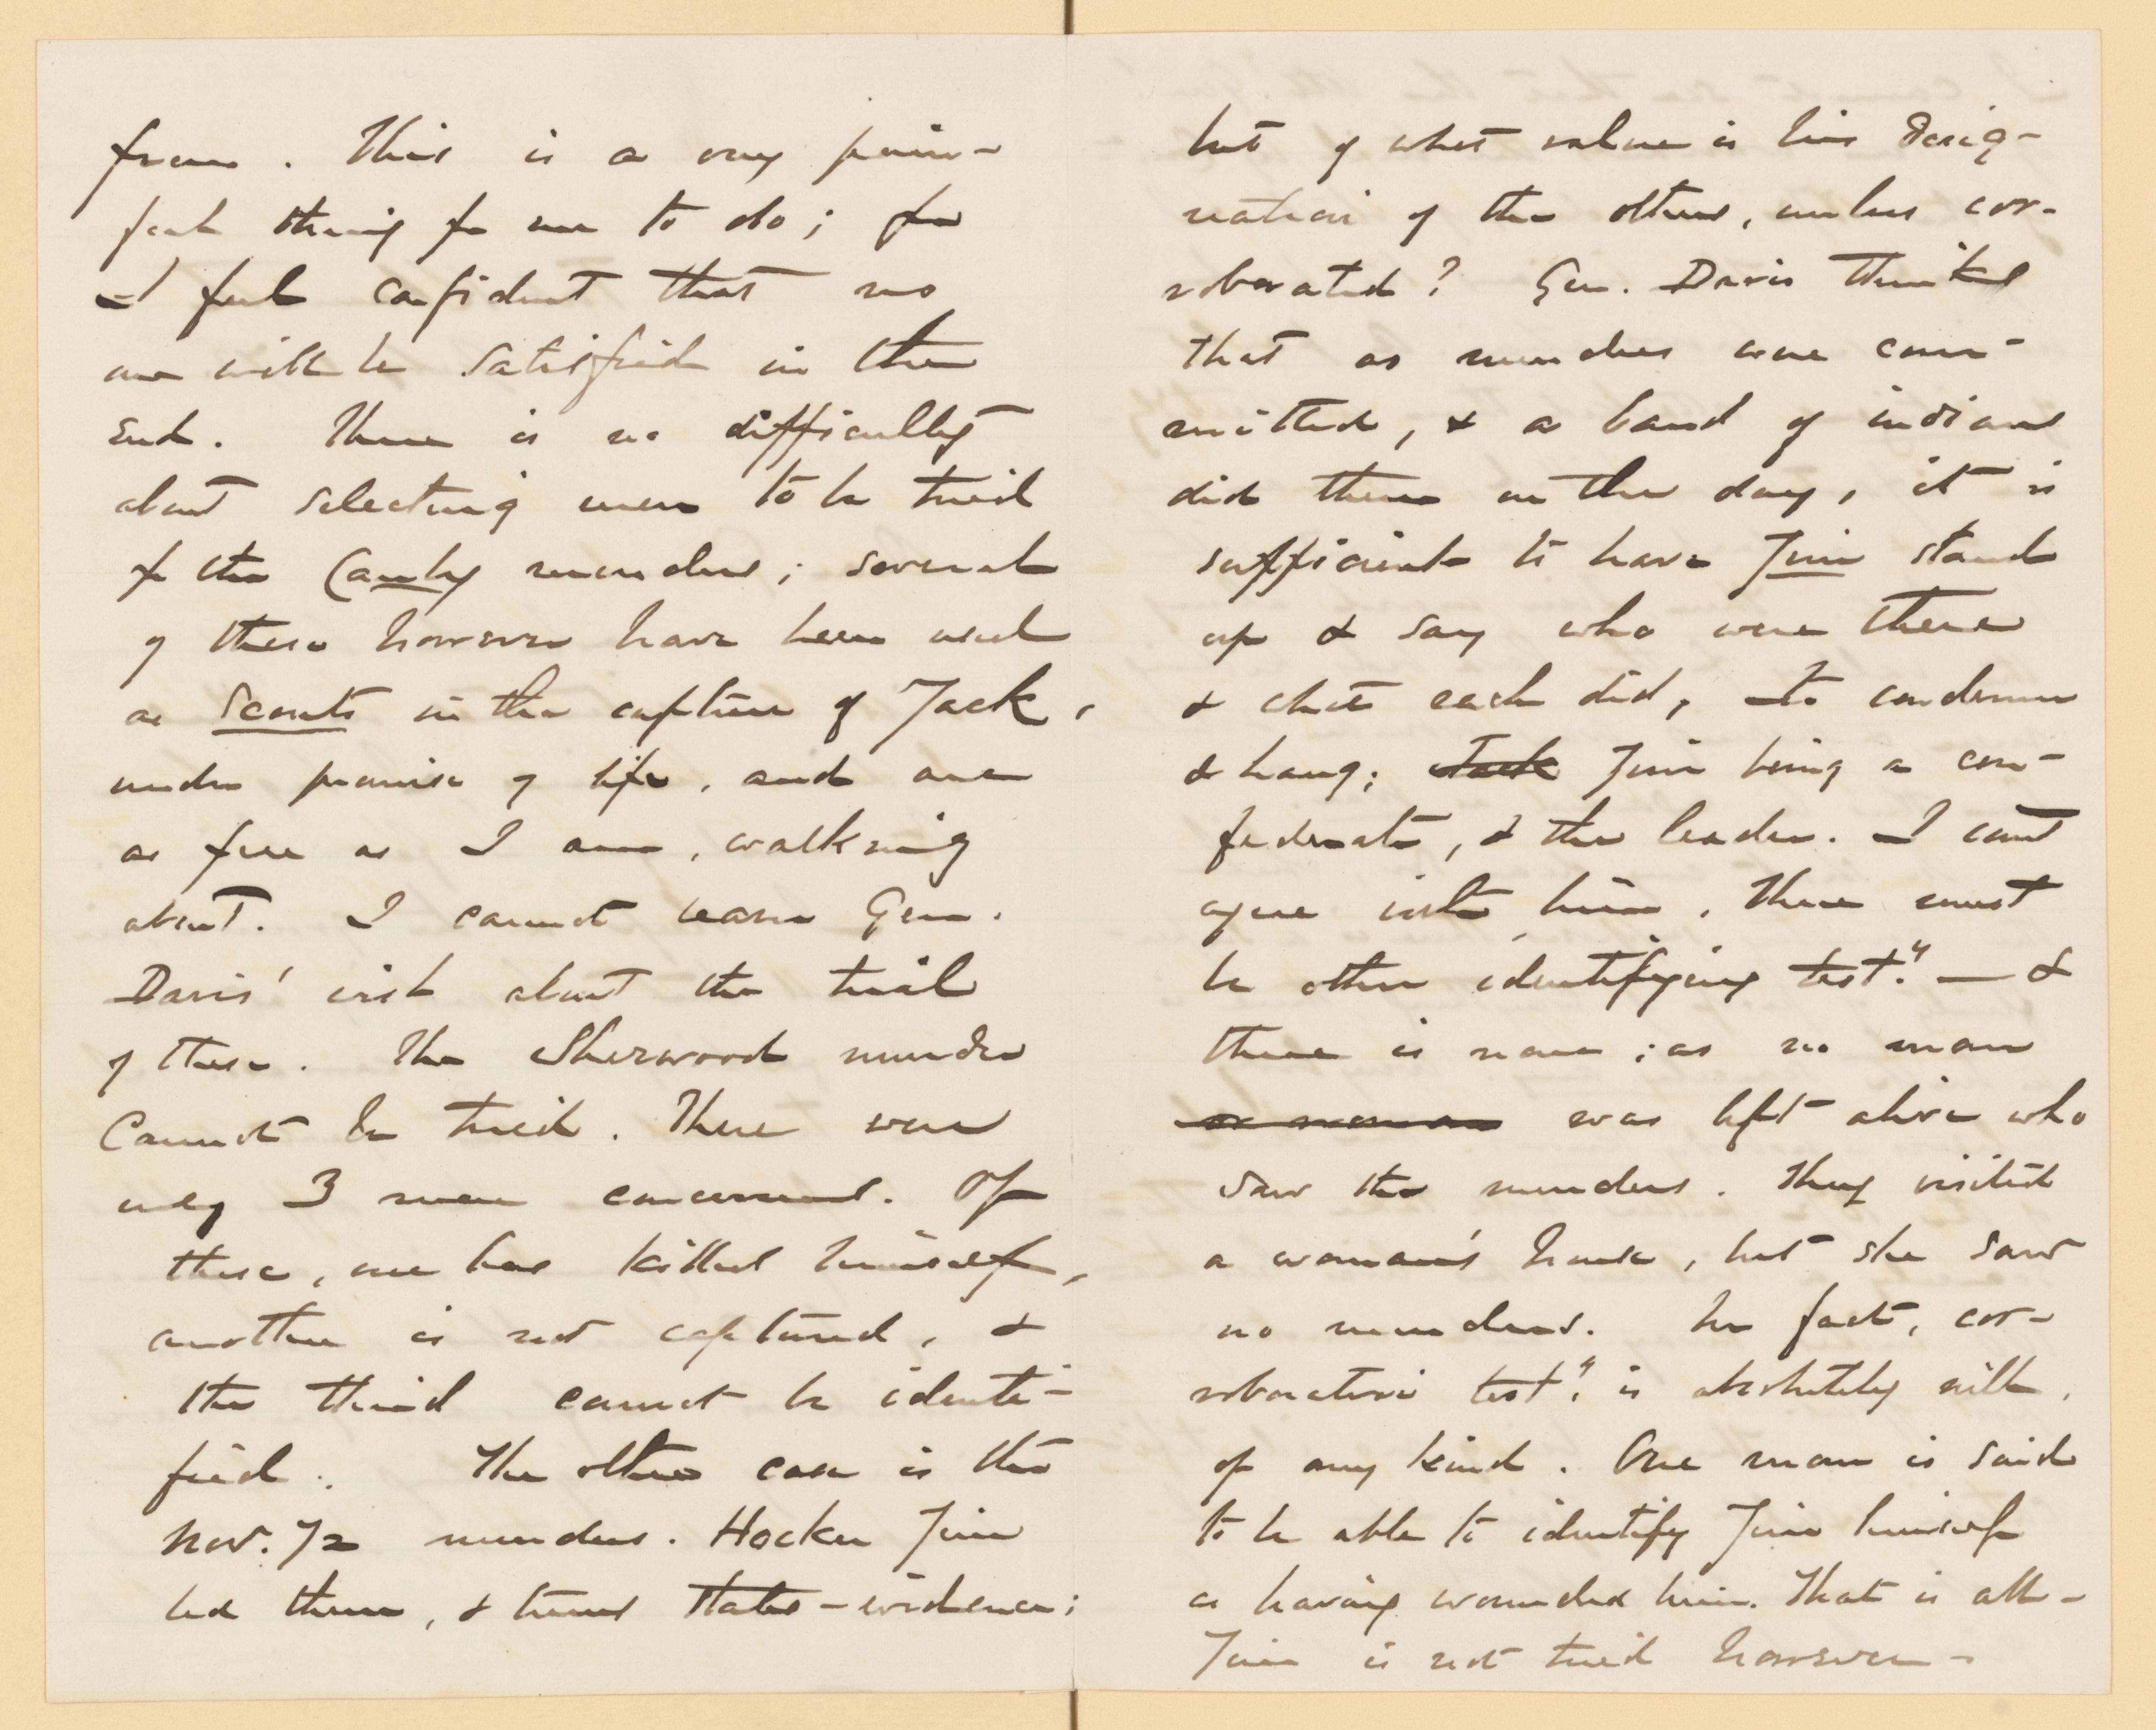 from. This is a very pain-
ful thing for me to do; for
I feel confident that no
one will be satisfied in the
end. There is no difficulty
about selecting men to be tried
for the Canby murders; several
of these however have been used
as Scouts in the capture of Jack,
under promise of life, and are
as free as I am, walking
about. I cannot learn Gen.
Davis' wish about the trial
of these. The Sherwood murder
Cannot be tried. There were
only 3 men concerned. Of
these, one has killed himself,
another is not captured, &
the third cannot be identi-
fied. The other case is the
Nov. 72 murders. Hocker Jim
led them, & turns States-evidence;
but of what value is his desig-
nation of the others, unless cor-
roborated? Gen. Davis thinks
that as murders were com-
mitted, & a band of indians
did them on the day, it is
sufficient to have Jim stand
up & say who were there
& what each did, to condemn
& hang; Jack Jim being a con-
federate, & the leader. I cant
agree with him. There must
be other identifying test.y — &
there is none; as no man
or woman was left alive who
saw the murders. They visited
a woman's house, but she saw
no murders. In fact, cor-
roborative test.y is absolutely nill,
of any kind. One man is said
to be able to identify Jim himself
as having wounded him. That is all -
Jim is not tried however -